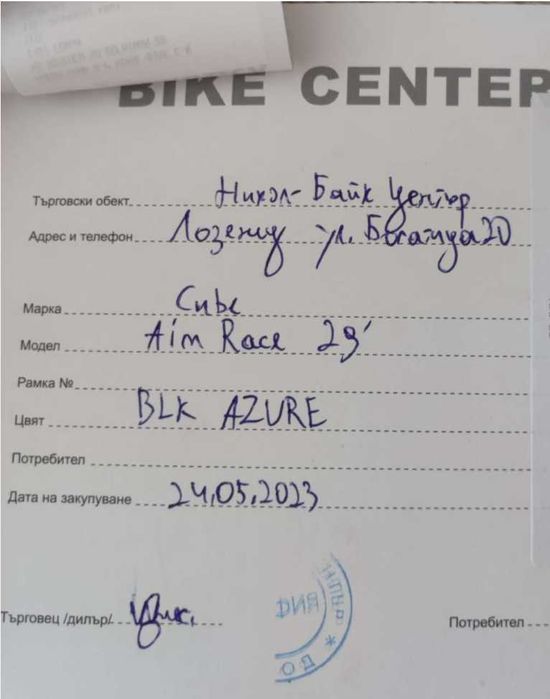 BIKE CENTER
Търговски обект Никол-Байк Център
Адрес и телефон Лозенец ул. Богатица 20
Марка Cube
Модел Aim Race 29'
Рамка №
Цвят BLK AZURE
Потребител
Дата на закупуване 24.05.2023
Търговец /дилър/
Потребител